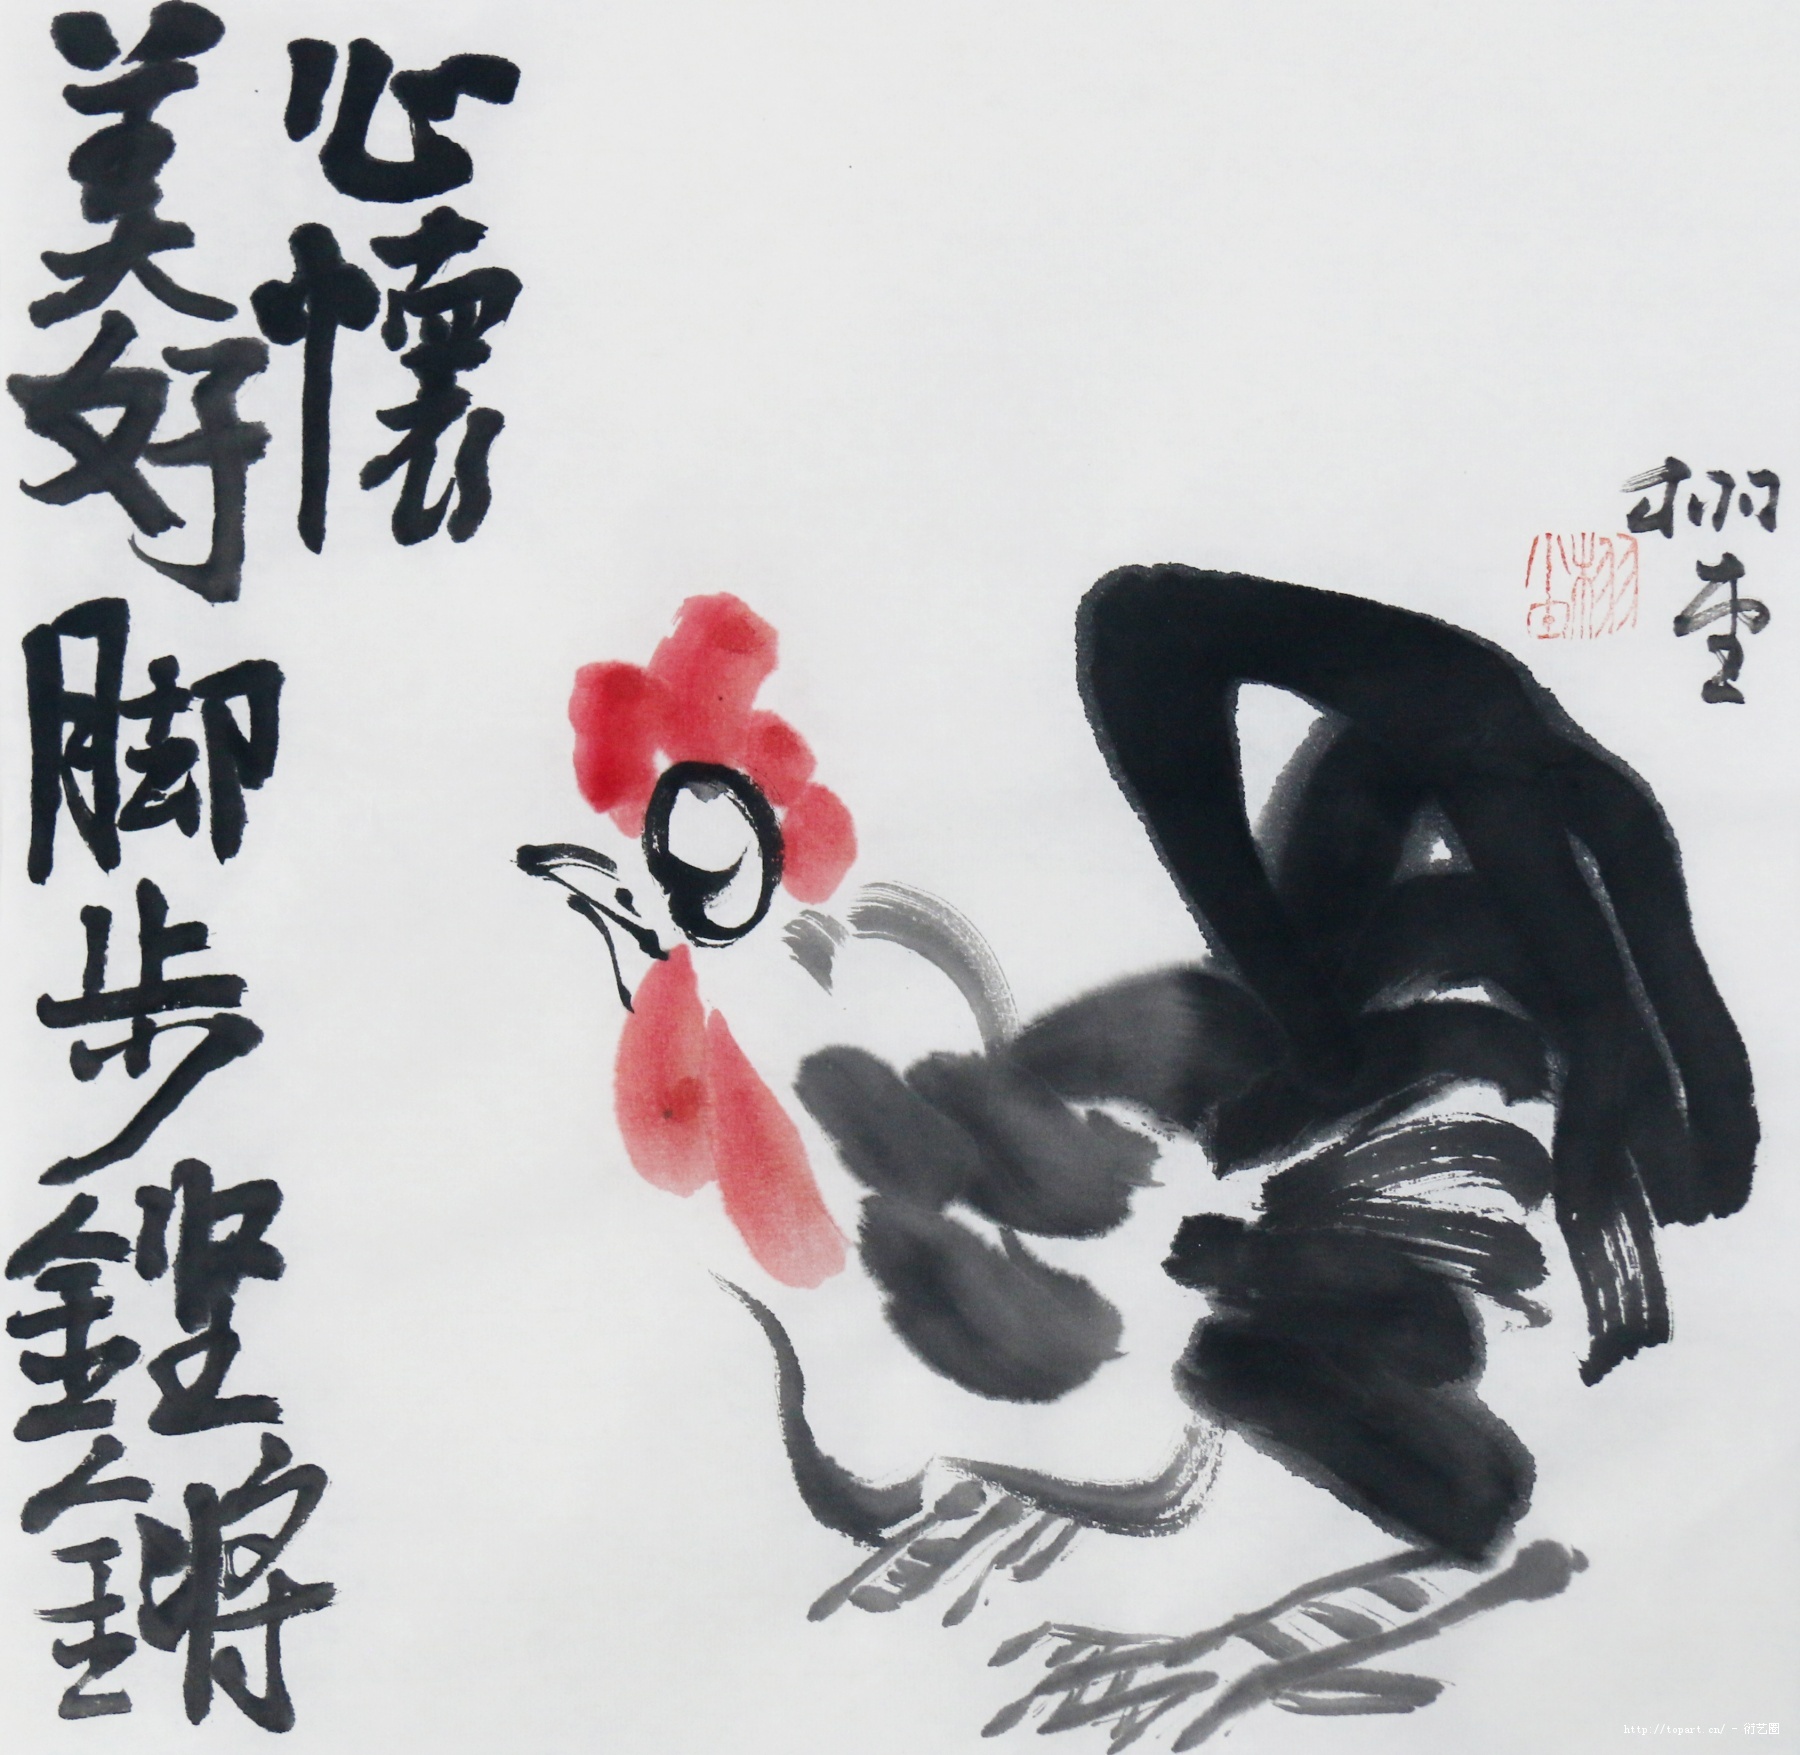 栩
心懷
美好脚步鏗鏘
http://topart.cn/ - 衍艺圈